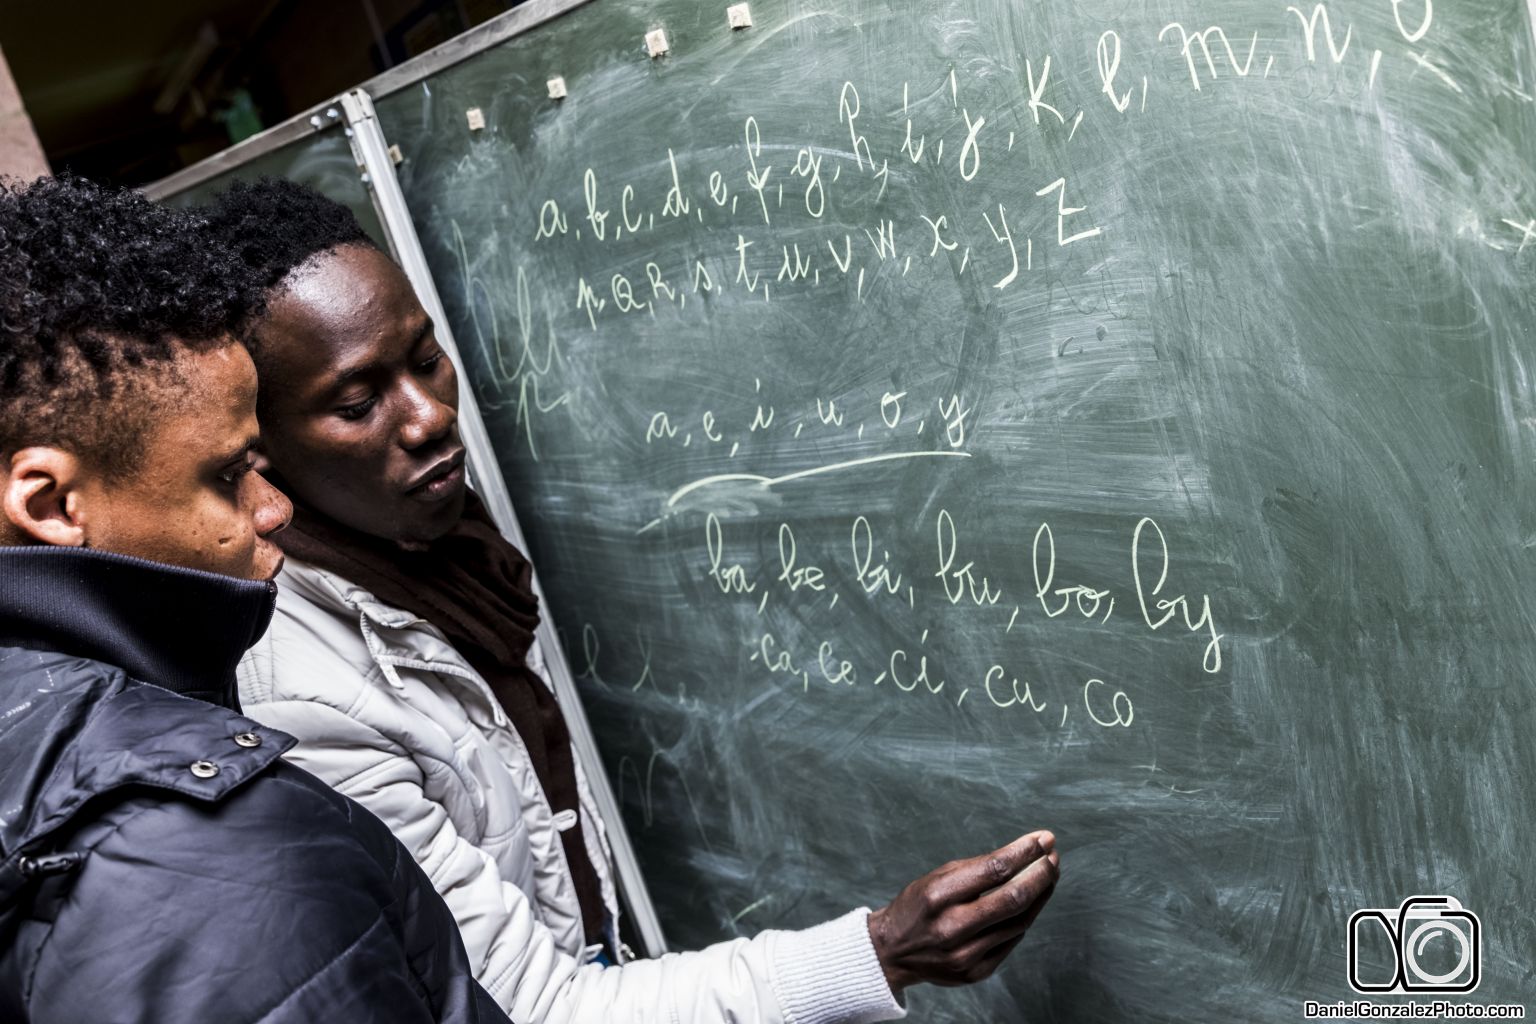 a, b, c, d, e, f, g, h, i, j, K, l, m, n, o
p, Q, R, s, t, u, v, w, x, y, Z
a, e, i, u, o, y
ba, be, bi, bu, bo, by
ca, ce, ci, cu, co
DanielGonzalezPhoto.com